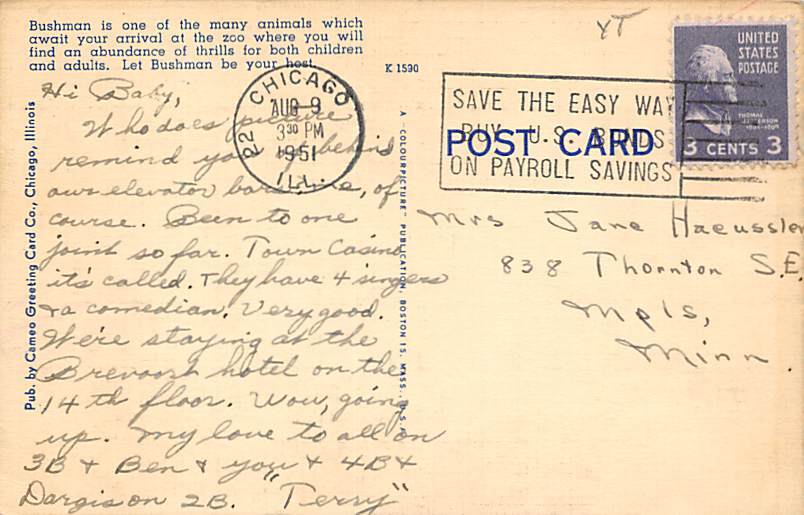 Bushman is one of the many animals which
await your arrival at the zoo where you will
find an abundance of thrills for both children
and adults. Let Bushman be your host.
K 1590
Pub. by Cameo Greeting Card Co., Chicago, Illinois
Hi Baby,
Who does picture
remind you, behind
our elevator bars, me, of
course. Been to one
joint so far. Town Casino
it's called. They have 4 singers
& a comedian. Very good.
We're staying at the
Brevoort hotel on the
14th floor. Wow, going
up. My love to all on
3B & Ben & you & 4B &
Dargis on 2B. "Terry"
A "COLOURPICTURE" PUBLICATION, BOSTON 15, MASS., U.S.A.
CHICAGO
22
AUG 9
3 30 PM
1951
ILL.
SAVE THE EASY WAY
BUY U.S. BONDS
ON PAYROLL SAVINGS
POST CARD
UNITED
STATES
POSTAGE
THOMAS
JEFFERSON
3 CENTS 3
Mrs Jane Haeussler
838 Thornton S.E.
Mpls,
Minn.